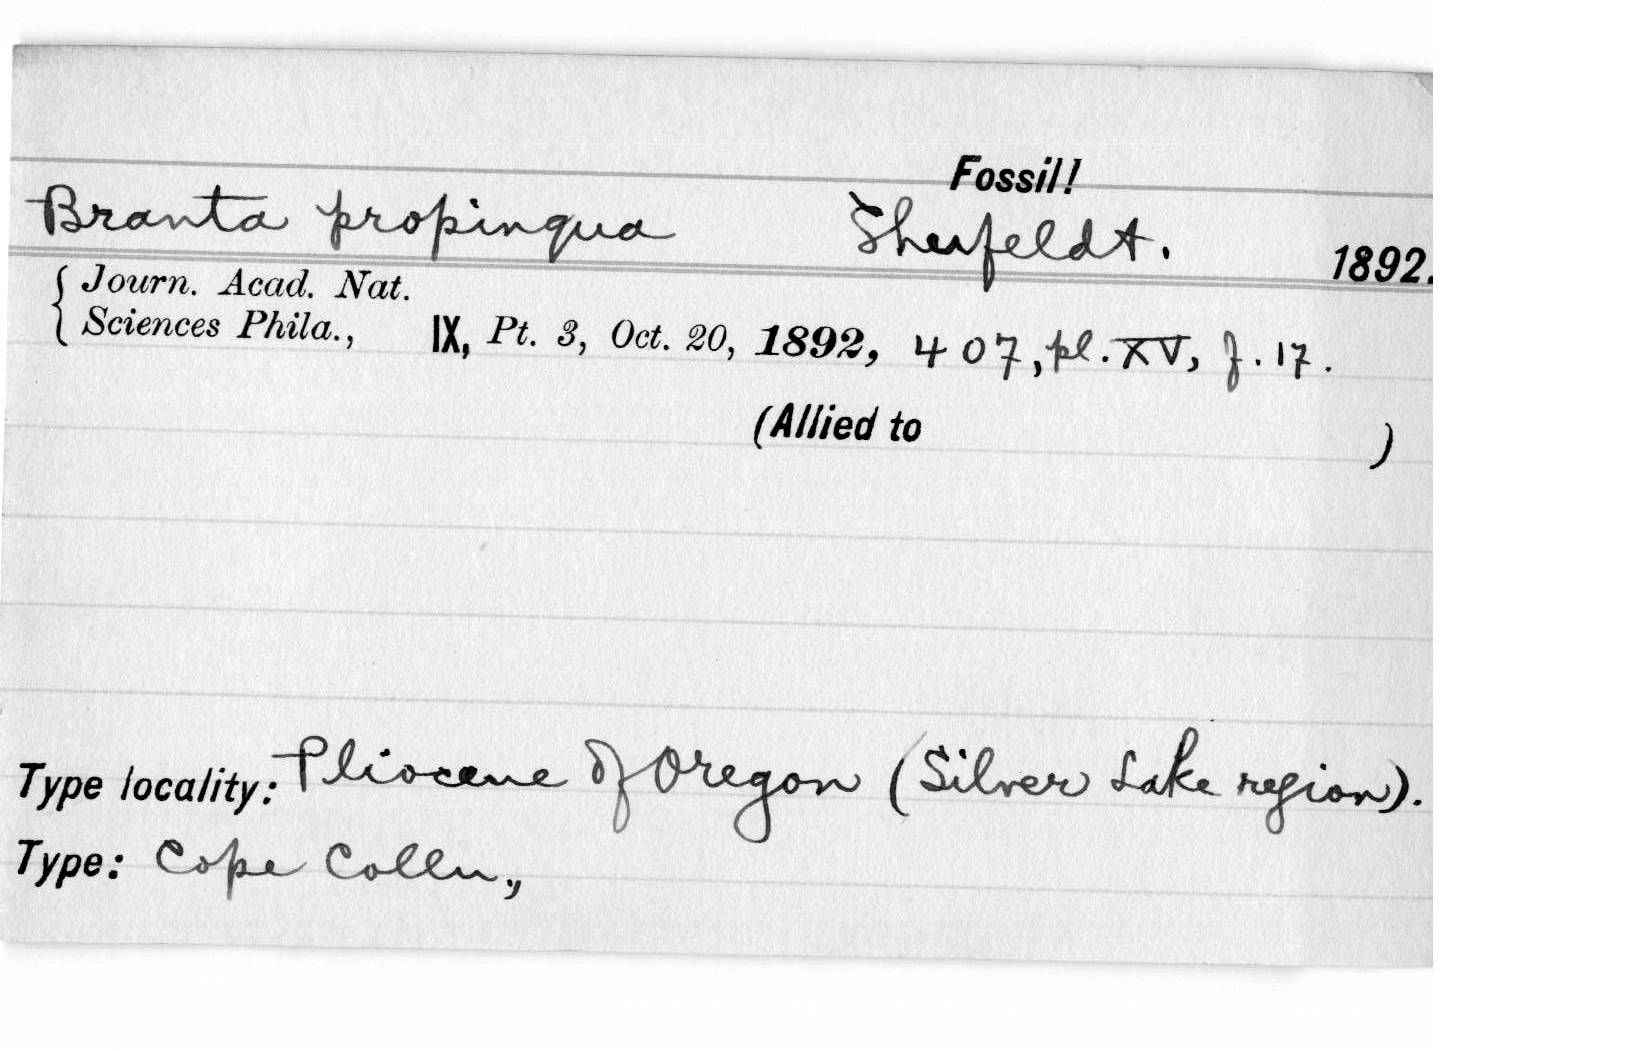 Fossil!
Branta propinqua Shufeldt. 1892.
{ Journ. Acad. Nat.
Sciences Phila., IX, Pt. 3, Oct. 20, 1892, 407, pl. XV, f. 17.
(Allied to )
Type locality: Pliocene of Oregon (Silver Lake region).
Type: Cope Colln.,